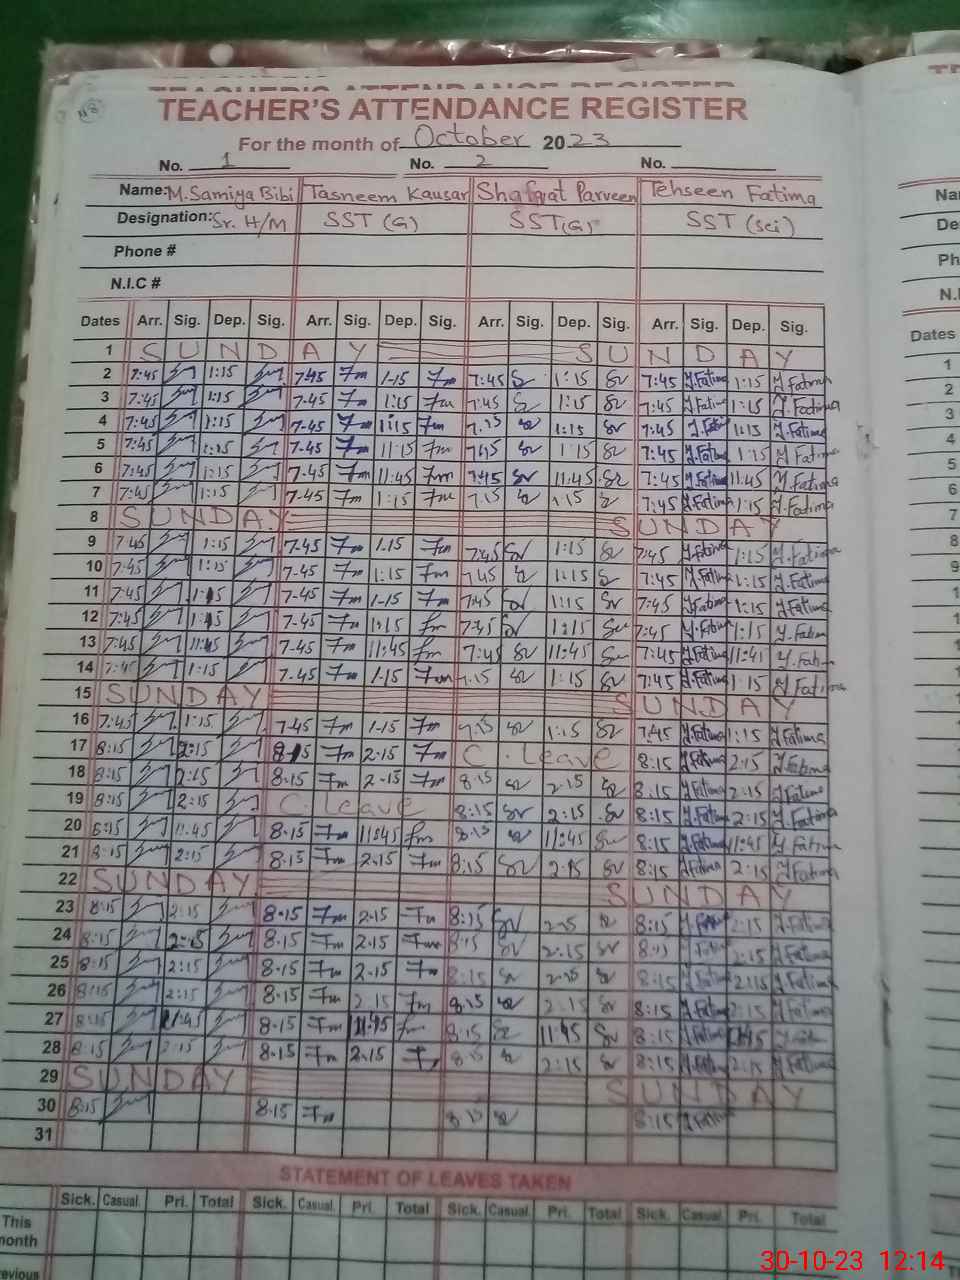 TEACHER'S ATTENDANCE REGISTER
TEACHER'S ATTENDANCE REGISTER
For the month of October 2023
No. 1 No. 2 No.
Name: M. Samiya Bibi Tasneem Kausar Shafqat Parveen Tehseen Fatima
Designation: Sr. H/M SST (G) SST (G) SST (Sci)
Phone #
N.I.C #
Dates Arr. Sig. Dep. Sig. Arr. Sig. Dep. Sig. Arr. Sig. Dep. Sig. Arr. Sig. Dep. Sig.
1 SUNDAY SUNDAY
2 7:45 1:15 7-45 Fm 1-15 Fm 7:45 1:15 7:45 J.Fatima 1:15 J.Fatima
3 7:45 1:15 7-45 Fm 1:15 Fm 7:45 1:15 7:45 J.Fatima 1:15 J.Fatima
4 7:45 1:15 7-45 Fm 1:15 Fm 1:15 7:45 J.Fatima 1:15 J.Fatima
5 7:45 7-45 Fm 11:15 Fm 1:15 7:45 J.Fatima 1:15 J.Fatima
6 7:45 1:15 7-45 Fm 11:45 Fm 11:45 7:45 J.Fatima 11:45 J.Fatima
7 7:45 1:15 7-45 Fm 1:15 Fm 7:45 J.Fatima 1:15 J.Fatima
8 SUNDAY SUNDAY
9 7:45 1:15 7-45 Fm 1-15 Fm 7:45 1:15 7:45 J.Fatima 1:15 J.Fatima
10 7:45 1:15 7-45 Fm 1:15 Fm 7:45 1:15 7:45 J.Fatima 1:15 J.Fatima
11 7:45 1:15 7-45 Fm 1-15 Fm 7:45 1:15 7:45 J.Fatima 1:15 J.Fatima
12 7:45 1:15 7-45 Fm 1:15 Fm 7:45 1:15 7:45 J.Fatima 1:15 J.Fatima
13 7:45 11:45 7-45 Fm 11:45 Fm 7:45 11:45 7:45 J.Fatima 11:41 J.Fatima
14 7:45 1:15 7-45 Fm 1-15 Fm 1:15 7:45 J.Fatima 1:15 J.Fatima
15 SUNDAY SUNDAY
16 7:45 1:15 7-45 Fm 1-15 Fm 1:15 7:45 J.Fatima 1:15 J.Fatima
17 8:15 2:15 8-15 Fm 2-15 Fm C. Leave 8:15 J.Fatima 2:15 J.Fatima
18 8:15 2:15 8-15 Fm 2-15 Fm 8:15 2:15 8:15 J.Fatima 2:15 J.Fatima
19 8:15 2:15 C. Leave 8:15 2:15 8:15 J.Fatima 2:15 J.Fatima
20 8:15 11:45 8-15 Fm 11:45 Fm 8:15 11:45 8:15 J.Fatima 11:45 J.Fatima
21 8:15 2:15 8-15 Fm 2-15 Fm 8:15 2:15 8:15 J.Fatima 2:15 J.Fatima
22 SUNDAY SUNDAY
23 8:15 2:15 8-15 Fm 2-15 Fm 8:15 8:15 J.Fatima 2:15 J.Fatima
24 8:15 2:15 8-15 Fm 2-15 Fm 8:15 2:15 2:15 J.Fatima
25 8:15 2:15 8-15 Fm 2-15 Fm 8:15 8:15 J.Fatima 2:15 J.Fatima
26 8:15 2:15 8-15 Fm 2-15 Fm 8:15 2:15 8:15 J.Fatima 2:15 J.Fatima
27 8:15 11:45 8-15 Fm 11:45 Fm 8:15 11:45 8:15 J.Fatima 11:45
28 8:15 2:15 8-15 Fm 2-15 8:15 2:15 8:15 J.Fatima 2:15 J.Fatima
29 SUNDAY SUNDAY
30 8:15 8-15 Fm 8:15 8:15 J.Fatima
31
STATEMENT OF LEAVES TAKEN
Sick. Casual. Pri. Total Sick. Casual. Pri. Total Sick. Casual. Pri. Total Sick. Casual. Pri. Total
This
month
Dates
1
2
3
4
5
6
7
8
9
30-10-23 12:14